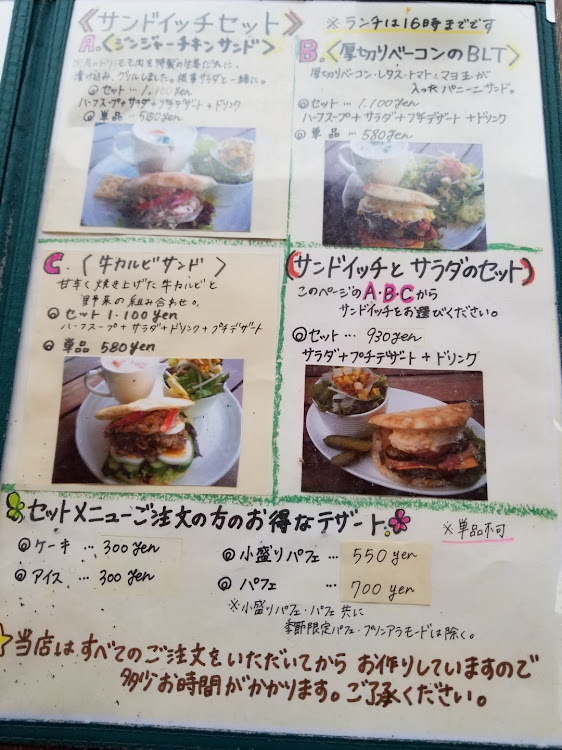 《サンドイッチセット》
※ランチは16時までです
A.〈ジンジャーチキンサンド〉
国産のトリもも肉を特製の生姜だれに、
漬け込み、グリルしました。根菜サラダと一緒に。
◎セット…1,100yen
ハーフスープ+サラダ+プチデザート+ドリンク
◎単品…580yen
B.〈厚切りベーコンのBLT〉
厚切りベーコン・レタス・トマト・マヨ玉が
入ったパニーニサンド。
◎セット…1.100yen
ハーフスープ+サラダ+プチデザート+ドリンク
◎単品…580yen
C.〈牛カルビサンド〉
甘辛く焼き上げた牛カルビと
野菜の組み合わせ。
◎セット1.100yen
ハーフスープ+サラダ+ドリンク+プチデザート
◎単品580yen
(サンドイッチとサラダのセット)
このページのA・B・Cから
サンドイッチをお選びください。
◎セット…930yen
サラダ+プチデザート+ドリンク
セットメニューご注文の方のお得なデザート.
※単品不可
◎ケーキ…300yen
◎アイス…300yen
◎小盛りパフェ…550yen
◎パフェ…700yen
※小盛りパフェ・パフェ共に
季節限定パフェ・プリンアラモードは除く。
当店はすべてのご注文をいただいてからお作りしていますので
多少お時間がかかります。ご了承ください。